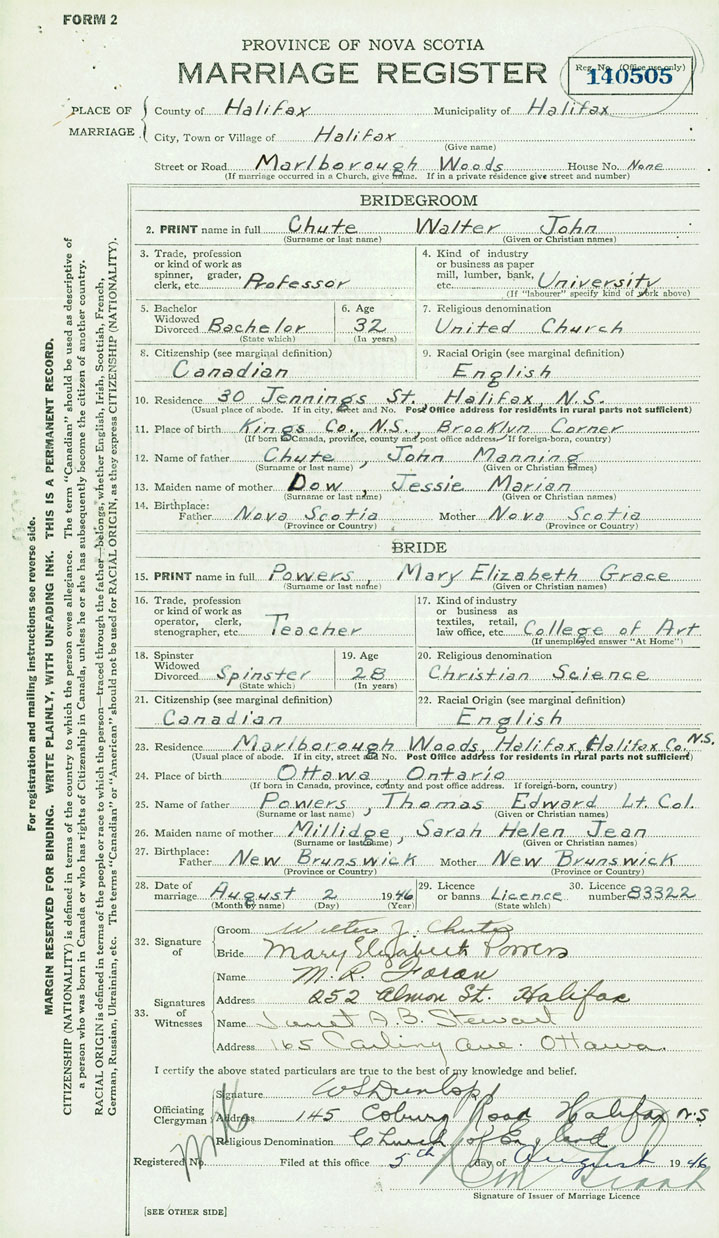 FORM 2
PROVINCE OF NOVA SCOTIA
MARRIAGE REGISTER
Reg. No. (Office use only)
140505
PLACE OF MARRIAGE
County of Halifax Municipality of Halifax
City, Town or Village of Halifax
(Give name)
Street or Road Marlborough Woods House No. None
(If marriage occurred in a Church, give name. If in a private residence give street and number)
BRIDEGROOM
2. PRINT name in full Chute Walter John
(Surname or last name) (Given or Christian names)
3. Trade, profession or kind of work as spinner, grader, clerk, etc. Professor
4. Kind of industry or business as paper mill, lumber, bank, etc. University
(If "labourer" specify kind of work above)
5. Bachelor Widowed Divorced Bachelor
(State which)
6. Age 32
(In years)
7. Religious denomination
United Church
8. Citizenship (see marginal definition)
Canadian
9. Racial Origin (see marginal definition)
English
10. Residence 30 Jennings St. Halifax, N.S.
(Usual place of abode. If in city, street and No. Post Office address for residents in rural parts not sufficient)
11. Place of birth Kings Co., N.S., Brooklyn Corner
(If born in Canada, province, county and post office address. If foreign-born, country)
12. Name of father Chute, John Manning
(Surname or last name) (Given or Christian names)
13. Maiden name of mother Dow, Jessie Marian
(Surname or last name) (Given or Christian names)
14. Birthplace: Father Nova Scotia Mother Nova Scotia
(Province or Country) (Province or Country)
BRIDE
15. PRINT name in full Powers, Mary Elizabeth Grace
(Surname or last name) (Given or Christian names)
16. Trade, profession or kind of work as operator, clerk, stenographer, etc. Teacher
17. Kind of industry or business as textiles, retail, law office, etc. College of Art
(If unemployed answer "At Home")
18. Spinster Widowed Divorced Spinster
(State which)
19. Age 28
(In years)
20. Religious denomination
Christian Science
21. Citizenship (see marginal definition)
Canadian
22. Racial Origin (see marginal definition)
English
23. Residence Marlborough Woods, Halifax, Halifax Co. N.S.
(Usual place of abode. If in city, street and No. Post Office address for residents in rural parts not sufficient)
24. Place of birth Ottawa, Ontario
(If born in Canada, province, county and post office address. If foreign-born, country)
25. Name of father Powers, Thomas Edward Lt. Col.
(Surname or last name) (Given or Christian names)
26. Maiden name of mother Millidge, Sarah Helen Jean
(Surname or last name) (Given or Christian names)
27. Birthplace: Father New Brunswick Mother New Brunswick
(Province or Country) (Province or Country)
28. Date of marriage August 2 1946
(Month by name) (Day) (Year)
29. Licence or banns Licence
(State which)
30. Licence number 83322
32. Signature of
Groom Walter J. Chute
Bride Mary Elizabeth Powers
33. Signatures of Witnesses
Name M. R. Foran
Address 252 Almon St. Halifax
Name Janet A. B. Stewart
Address 165 Carling Ave. Ottawa
I certify the above stated particulars are true to the best of my knowledge and belief.
Officiating Clergyman
Signature W S Dunlop
Address 145 Coburg Road Halifax N.S.
Religious Denomination Church of England
Registered No. Filed at this office 5th day of August 1946
Signature of Issuer of Marriage Licence
[SEE OTHER SIDE]
For registration and mailing instructions see reverse side.
MARGIN RESERVED FOR BINDING. WRITE PLAINLY, WITH UNFADING INK. THIS IS A PERMANENT RECORD.
CITIZENSHIP (NATIONALITY) is defined in terms of the country to which the person owes allegiance. The term "Canadian" should be used as descriptive of
a person who was born in Canada or who has rights of Citizenship in Canada, unless he or she has subsequently become the citizen of another country.
RACIAL ORIGIN is defined in terms of the people or race to which the person—traced through the father—belongs, whether English, Irish, Scottish, French,
German, Russian, Ukrainian, etc. The terms "Canadian" or "American" should not be used for RACIAL ORIGIN, as they express CITIZENSHIP (NATIONALITY).